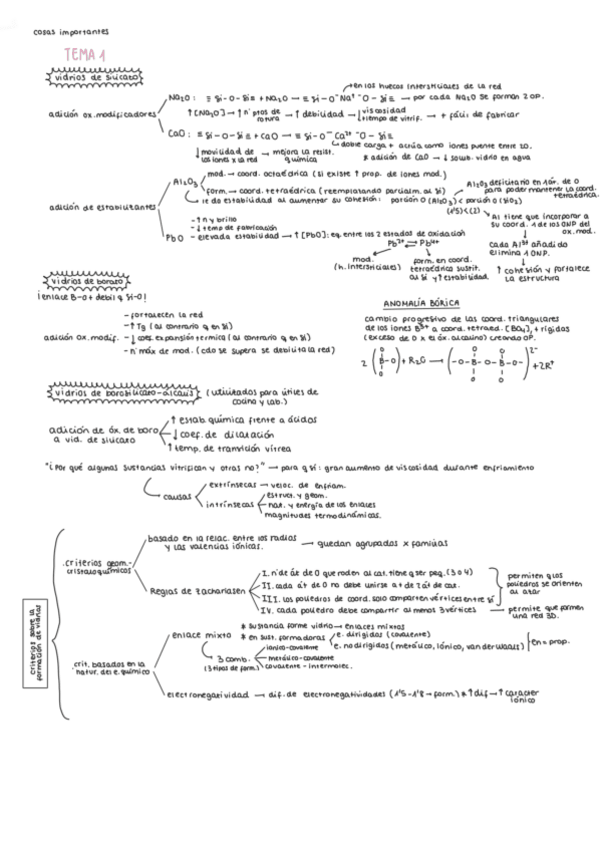 cosas importantes
TEMA 1
vidrios de silicato
adición ox. modificadores
Na₂O: ≡ Si-O-Si≡ + Na₂O → ≡ Si-O⁻Na⁺ ⁻O-Si≡ → por cada Na₂O se forman 2 OP.
en los huecos intersticiales de la red
↑[Na₂O] → ↑ nº ptos de rotura → ↑ debilidad → ↓ viscosidad ↓ tiempo de vitrif. → + fácil de fabricar
CaO: ≡Si-O-Si≡ + CaO → ≡ Si-O⁻ Ca²⁺ ⁻O-Si≡
doble carga + actúa como iones puente entre 2O.
↓ movilidad de los iones x la red → mejora la resist. química
* adición de CaO → ↓ solub. vidrio en agua
adición de estabilitantes
Al₂O₃
mod. → coord. octaédrica (si existe ↑ prop. de iones mod.)
form. → coord. tetraédrica (reemplazando parcialm. al Si)
le da estabilidad al aumentar su cohesión: porción O (Al₂O₃) < porción O (SiO₂)
(1'5) < (2)
Al₂O₃ deficitario en 1 át. de O para poder mantener la coord. tetraédrica.
Al tiene que incorporar a su coord. 1 de los ONP del ox. mod.
cada Al³⁺ añadido elimina 1 ONP.
↑ cohesión y fortalece la estructura
PbO
- ↑ n y brillo
- ↓ temp de fabricación
- elevada estabilidad → ↑ [PbO]: eq. entre los 2 estados de oxidación
Pb²⁺ ⇌ Pb⁴⁺
mod. (h. intersticiales)
form. en coord. tetraédrica sustit. al Si y ↑ estabilidad.
vidrios de borato
¡enlace B-O + débil q Si-O!
adición ox. modif.
- fortalecen la red
- ↑ Tg (al contrario q en Si)
- ↓ coef. expansión térmica (al contrario q en Si)
- nº máx de mod. (cdo se supera se debilita la red)
ANOMALÍA BÓRICA
cambio progresivo de las coord. triangulares
de los iones B³⁺ a coord. tetraed. [BO₄], + rígidas
(exceso de O x el óx. alcalino) creando OP.
2 (B-O) + R₂O → (-O-B-O-B-O-)²⁻ + 2R⁺
vidrios de borosilicato-alcalis (utilizados para útiles de cocina y lab.)
adición de óx. de boro a vid. de silicato
↑ estab. química frente a ácidos
↓ coef. de dilatación
↑ temp. de transición vítrea
"¿Por qué algunas sustancias vitrifican y otras no?" → para q sí: gran aumento de viscosidad durante enfriamiento
causas
extrínsecas → veloc. de enfriam.
intrínsecas
estruct. y geom.
nat. y energía de los enlaces
magnitudes termodinámicas.
criterios sobre la formación de vidrios
criterios geom.-cristaloquímicos
basado en la relac. entre los radios y las valencias iónicas. → quedan agrupados x familias
Reglas de Zachariasen
I. nº de át de O que roden al cat. tiene q ser peq. (3 o 4)
II. cada át de O no debe unirse a + de 2 át de cat.
III. los poliedros de coord. solo comparten vértices entre sí
IV. cada poliedro debe compartir al menos 3 vértices
permiten q los poliedros se orienten al azar
permite que formen una red 3D.
crit. basados en la natur. del e. químico
enlace mixto
* sustancia forme vidrio → enlaces mixtos
* en sust. formadoras
e. dirigidos (covalente)
e. no dirigidos (metálico, iónico, van der waals)
en = prop.
3 comb. (3 tipos de form.)
iónico-covalente
metálico-covalente
covalente-intermolec.
electronegatividad → dif. de electronegatividades (1'5 - 1'8 → form.) * ↑ dif → ↑ carácter iónico